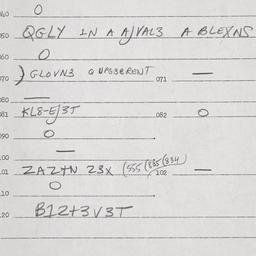 040 O
050 QGLY IN A AJVAL3 A BLEXNS
060 O
070 ) GLOVN3 QUPG3BRENT 071 —
080 —
081 KL8-EJ3T 082 O
090 O
100 —
101 ZAZ+N 23X (555 (885 (834 102 —
110 O
120 B12+3V3T